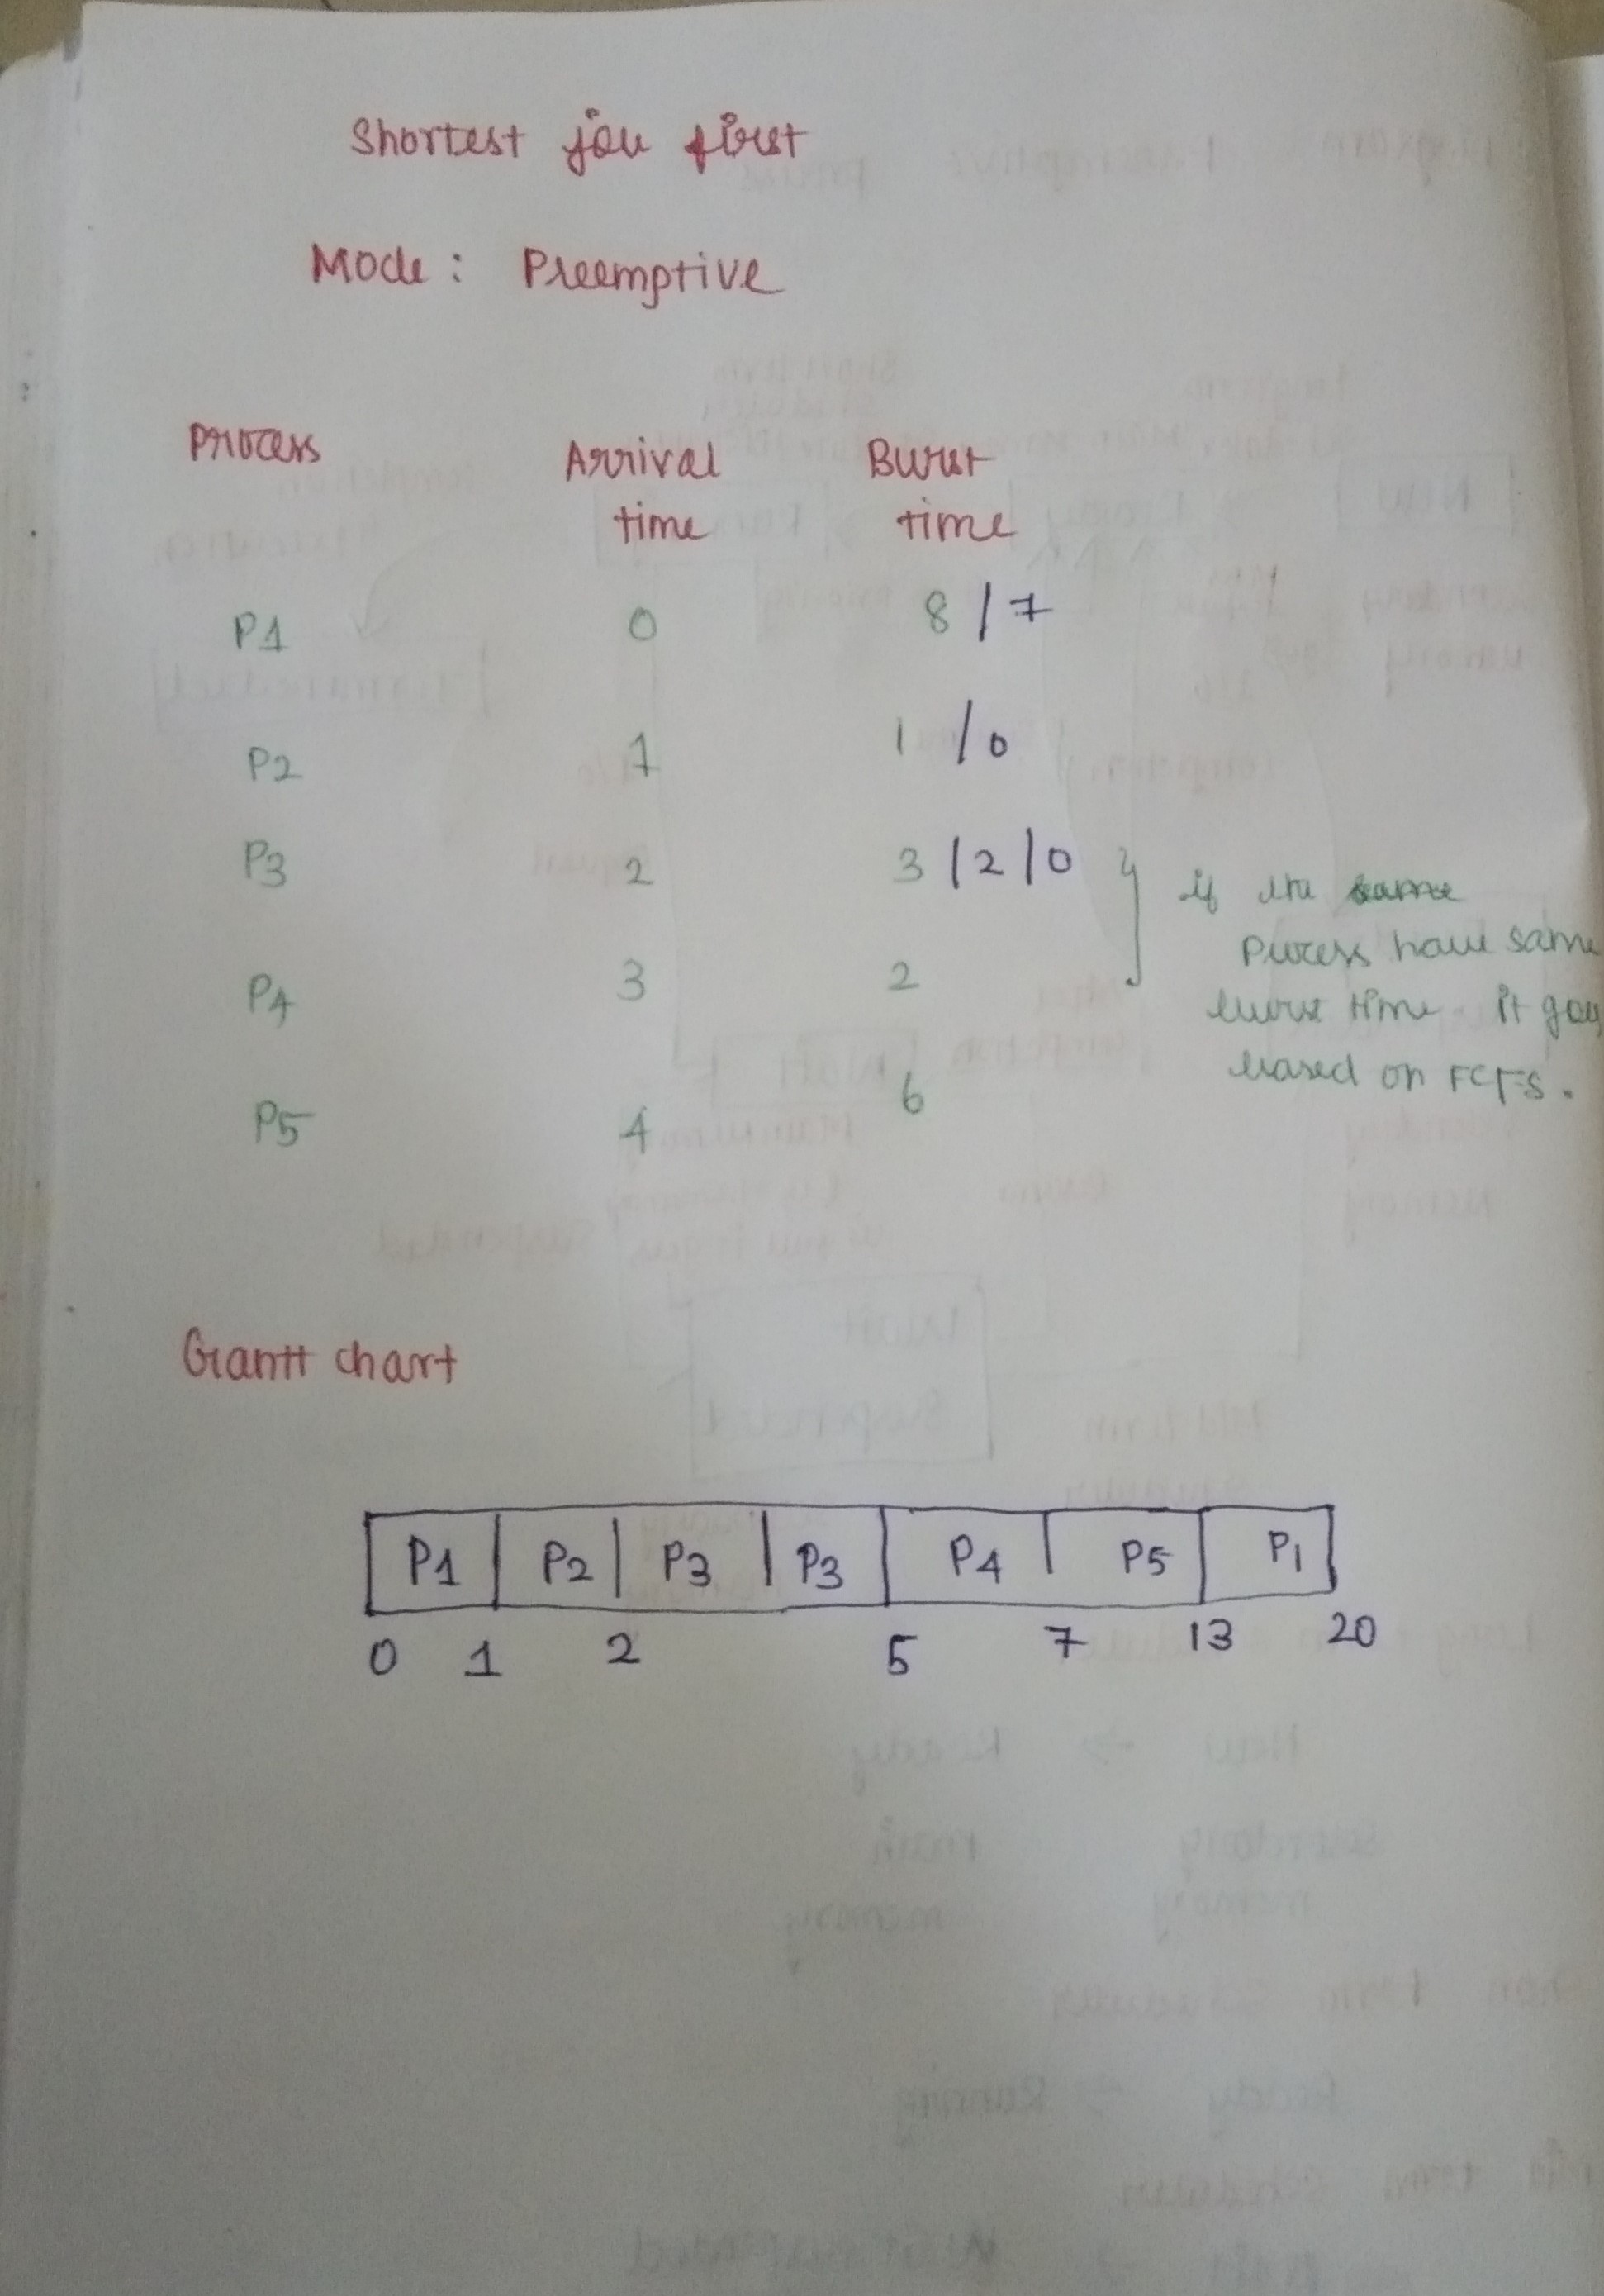 Shortest job first
Mode: Preemptive
Process Arrival time Burst time
P1 0 8/7
P2 1 1/0
P3 2 3/2/0
P4 3 2
P5 4 6
} if the same
Process have same
burst time it goes
based on FCFS.
Gantt chart
P1 P2 P3 P3 P4 P5 P1
0 1 2 5 7 13 20